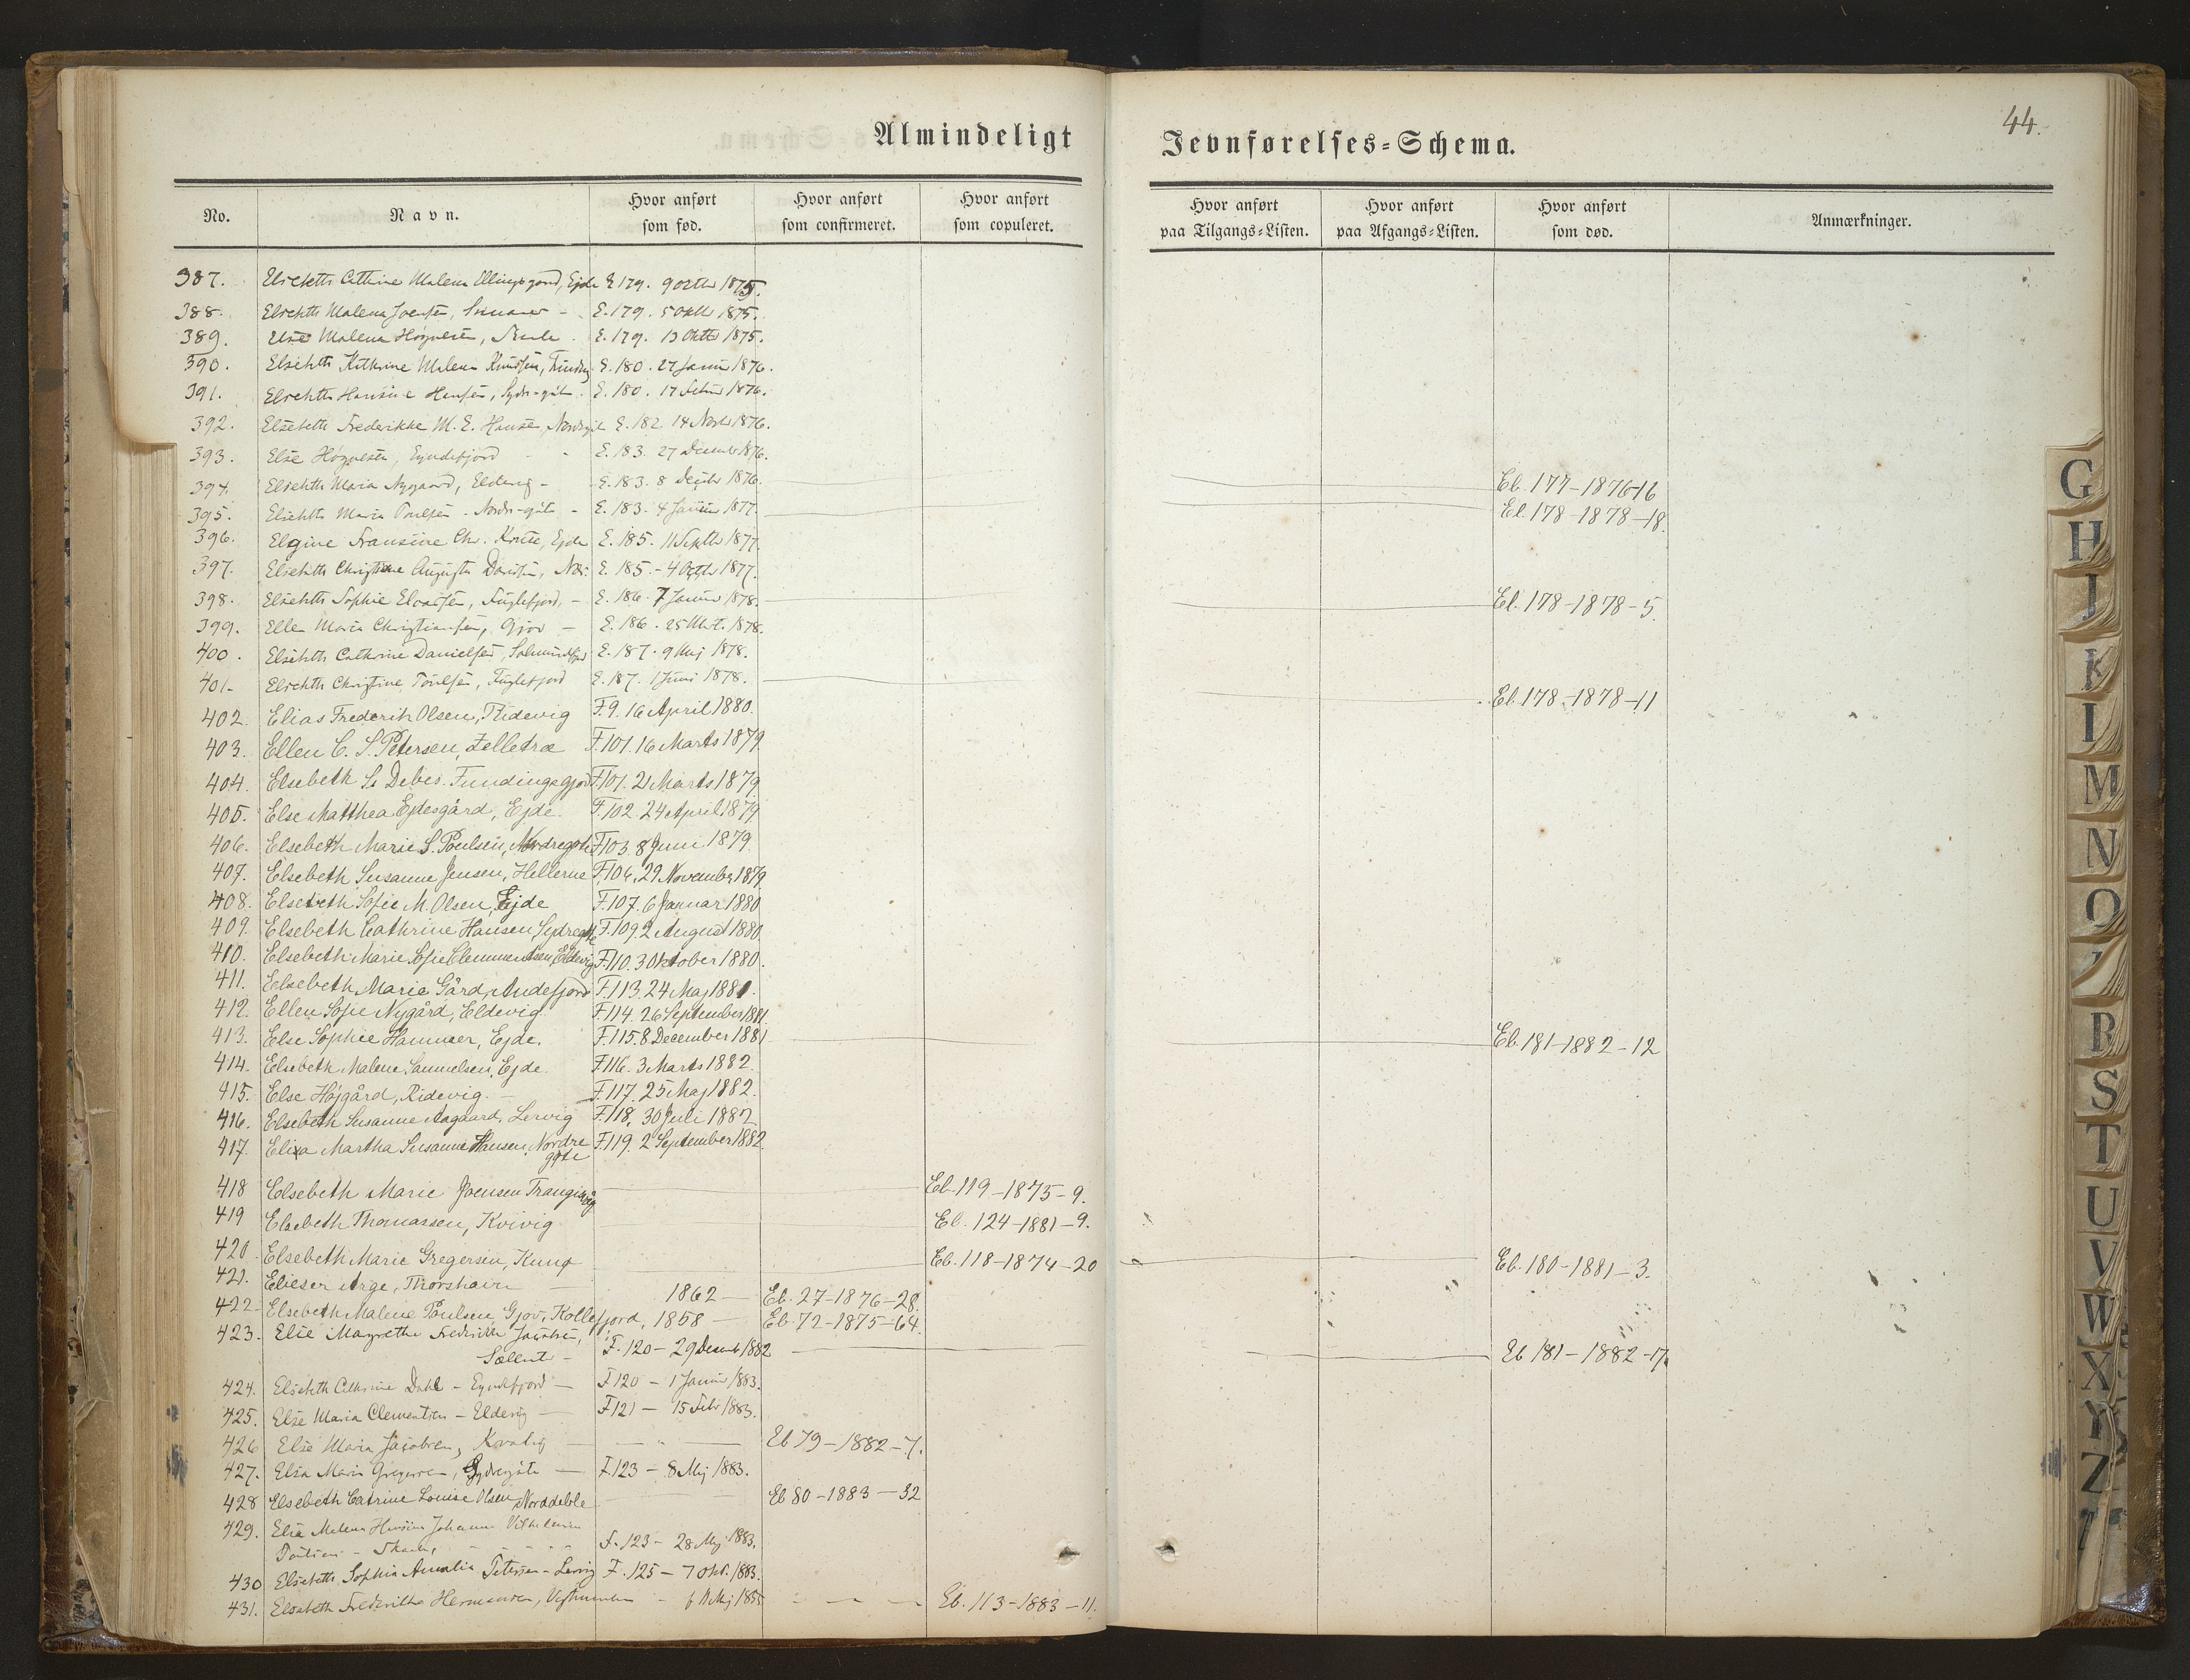 44.
Almindeligt Jevnførelses=Schema.
No. Navn. Hvor anført som fød. Hvor anført som confirmeret. Hvor anført som copuleret. Hvor anført paa Tilgangs=Listen. Hvor anført paa Afgangs=Listen. Hvor anført som død. Anmærkninger.
387. Elsebeth Cathrine Malene Ellingsgaard, Ejde E. 179. 9 Octbr 1875.
388. Elsebeth Malena Joensen, - E. 179. 5 Oktbr 1875.
389. Else Malena Høgnesen, E. 179. 13 Oktbr 1875.
390. Elsebeth Kathrine Malena Knudsen, E. 180. 27 Januar 1876.
391. Elsebeth Hansine Hansen, Sydr-gøte. E. 180. 17 Februar 1876.
392. Elsebeth Frederikke M. E. Hansen, Nordrgøte E. 182 14 Novbr 1876.
393. Else Høgnesen, Eyndefjord - - E. 183. 27 December 1876.
394. Elsebeth Maria Nygaard, Eldevig - E. 183. 8 Decbr 1876. Eb. 177-1876-16
395. Elsebeth Maria Poulsen - Nordr-gøte - E. 183. 4 Januar 1877. Eb. 178-1878-18.
396. Elgine Fransine Chr. Kruse, Ejde E. 185. 11 Septbr 1877.
397. Elsebeth Christiane Augusta Davidsen, E. 185. - 4 Octbr 1877.
398. Elsebeth Sophie Olsen, Fuglefjord, - E. 186. 7 Januar 1878. Eb. 178-1878-5.
399. Ellen Maria Christiansen, Gjov - E. 186. 25 Mrt. 1878.
400. Elsebeth Cathrine Danielsen, E. 187. 9 Maj 1878.
401. Elsebeth Christine Poulsen, Fuglefjord E. 187. 1 Juni 1878. Eb. 178-1878-11
402. Elias Frederik Olsen, Ridevig F. 9. 16 April 1880.
403. Ellen C. S. Petersen, Zelletræ F. 101. 16 Marts 1879.
404. Elsebeth S. Debes. Fundingsgjord F. 101. 21 Marts 1879.
405. Else Matthea Ejdesgård, Ejde. F. 102. 24 April 1879.
406. Elsebeth Marie S. Poulsen, Nordregøte F. 103. 8 Juni 1879.
407. Elsebeth Susanne Jensen, Hellerne F. 106. 29 November 1879.
408. Elsebeth Sofie M. Olsen, Ejde F. 107. 6 Januar 1880
409. Elsebeth Cathrine Hansen, Sydregøte F. 109. 2 August 1880.
410. Elsebeth Marie Sofie Clemmentsen, Eldevig F. 110. 3 Oktober 1880.
411. Elsebeth Marie Gård, Andefjord F. 113. 24 Maj 1881.
412. Ellen Sofie Nygård, Eldevig. F. 114. 26 September 1881.
413. Else Sophie Hammer, Ejde. F. 115. 8 December 1881 Eb. 181-1882-12
414. Elsebeth Malene Samuelsen, Ejde F. 116. 3 Marts 1882.
415. Else Højgård, Ridevig. - F. 117. 25 Maj 1882.
416. Elsebeth Susanne Aagaard, Lervig F. 118. 30 Juli 1882
417. Elisa Martha Susanne Hansen, Nordre F. 119. 2 September 1882.
gøte
418 Elsebeth Marie Joensen Trangisvåg Eb. 119-1875-9.
419 Elsebeth Thomassen, Kvivig Eb. 124-1881-9.
420. Elsebeth Marie Gregersen, Kunø Eb. 118-1874-20 Eb. 180-1881-3.
421. Elieser Arge, Thorshavn - 1862 - Eb. 27-1876-28.
422- Elsebeth Malene Poulsen, Gjov, Kollefjord, 1858 - Eb. 72-1875-64.
423. Else Margrethe Frederikke Jacobsen,
Selentr - F. 120 - 29 Decemb 1882 Eb 181-1882-17.
424. Elsebeth Cathrine Dahl - Eyndefjord - F 120 - 1 Januar 1883.
425. Else Maria Clementsen - Eldevig - F 121 - 15 Febr 1883.
426 Else Maria Jacobsen, - - " - Eb 79-1882-7.
427. Elsa Maria Gregersen, Sydregøte - F. 123 - 8 Maj 1883.
428 Elsebeth Catrine Louise Olsen Norddeble Eb 80-1883-32
429. Elsa Malena Hansine Johanna Vilhelmine
Poulsen - F. 123 - 28 Maj 1883.
430 Elsebeth Sophia Amalia Petersen - Lervig F. 125 - 7 Okt. 1883.
431. Elsebeth Frederikke Hermansen, Vestmanhavn - 1855 Eb. 113-1883-11.
G
H
J
K
L
M
N
O
R
S
T
U
V
W
X
Y
Z